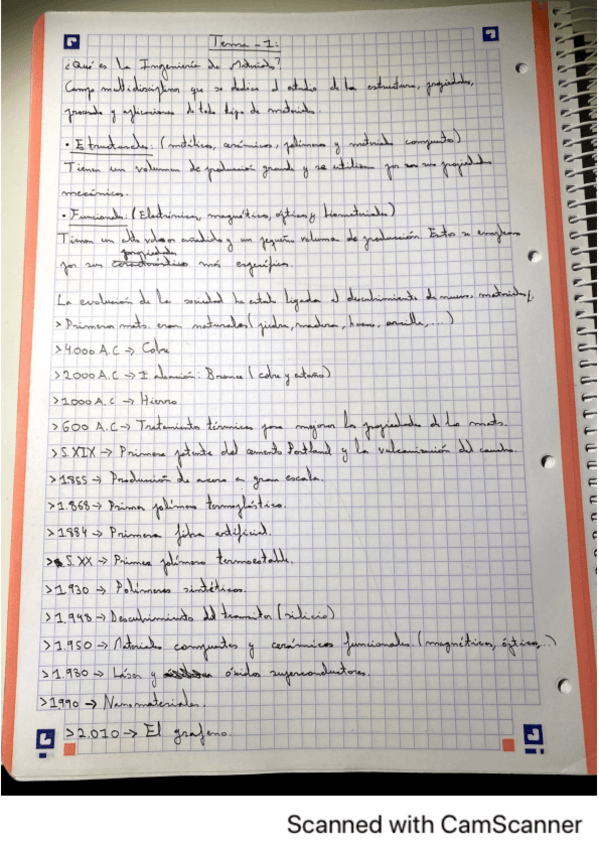 Tema - 1:
¿Qué es la Ingeniería de Materiales?
Campo multidisciplinar que se dedica al estudio de la estructura, propiedades,
procesado y aplicaciones de todo tipo de materiales.
· Estructurales: (metálicos, cerámicos, polímeros y materiales compuestos)
Tienen un volumen de producción grande y se utilizan por sus propiedades
mecánicas.
· Funcionales: (Electrónicos, magnéticos, ópticos y biomateriales)
Tienen un alto valor añadido y un pequeño volumen de producción. Estos se emplean
por sus propiedades más específicas.
La evolución de la sociedad ha estado ligada al descubrimiento de nuevos materiales.
> Primeros mats. eran naturales (piedra, madera, hueso, arcilla, ...)
> 4000 A.C → Cobre
> 2000 A.C → 1 aleación: Bronce (cobre y estaño)
> 1000 A.C → Hierro
> 600 A.C → Tratamientos térmicos para mejorar las propiedades de los mats.
> S.XIX → Primera patente del cemento Portland y la vulcanización del caucho.
> 1855 → Producción de acero a gran escala.
> 1.868 → Primer polímero termoplástico.
> 1884 → Primera fibra artificial.
> S.XX → Primer polímero termoestable.
> 1.930 → Polímeros sintéticos.
> 1.948 → Descubrimiento del transistor (silicio)
> 1.950 → Materiales compuestos y cerámicos funcionales. (magnéticos, ópticos, ..)
> 1.980 → Láser y óxidos superconductores.
> 1990 → Nanomateriales.
> 2.010 → El grafeno.
Scanned with CamScanner